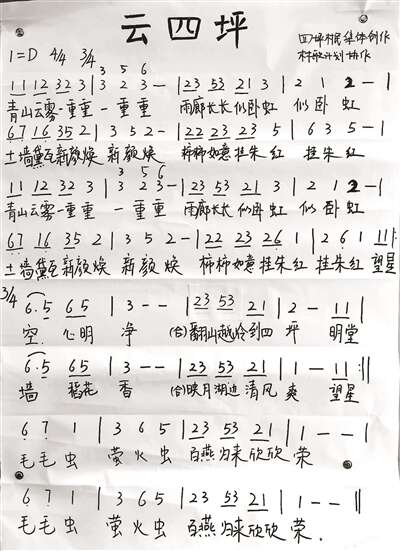 云四坪
1=D 4/4 3/4
四坪村民集体创作
村歌计划协作
3 5 6
1112 323 | 3 3 23 - | 23 53 213 | 2 1 2 - |
青山云雾一重重 一重重 雨廊长长似卧虹 似卧虹
67 16 35 2 | 3 5 2 - | 22 23 23 5 | 6 3 5 - |
土墙黛瓦新颜焕 新颜焕 柿柿如意挂朱红 挂朱红
3 5 6
11 12 32 3 | 3 2 3 - | 23 53 21 3 | 2 1 2 - |
青山云雾一重重 一重重 雨廊长长似卧虹 似卧虹
67 16 35 2 | 3 5 2 - | 22 23 26 1 | 2 6 1 11 :|
土墙黛瓦新颜焕 新颜焕 柿柿如意挂朱红 挂朱红 望星
3/4
6.5 65 | 3 - - | 23 53 21 | 2 - 11 |
空. 心明 净 (合)翻山越冷到四 坪 明堂
6.5 65 | 3 - - | 23 53 21 | 1 - 11 :||
墙 稻花 香 (合)映月湖边清风 爽 望星
6 7 1 | 3 6 5 | 23 53 21 | 1 - - |
毛毛虫 萤火虫 百燕归来欣欣荣
6 7 1 | 3 6 5 | 23 53 21 | 1 - - ||
毛毛虫 萤火虫 百燕归来欣欣荣.